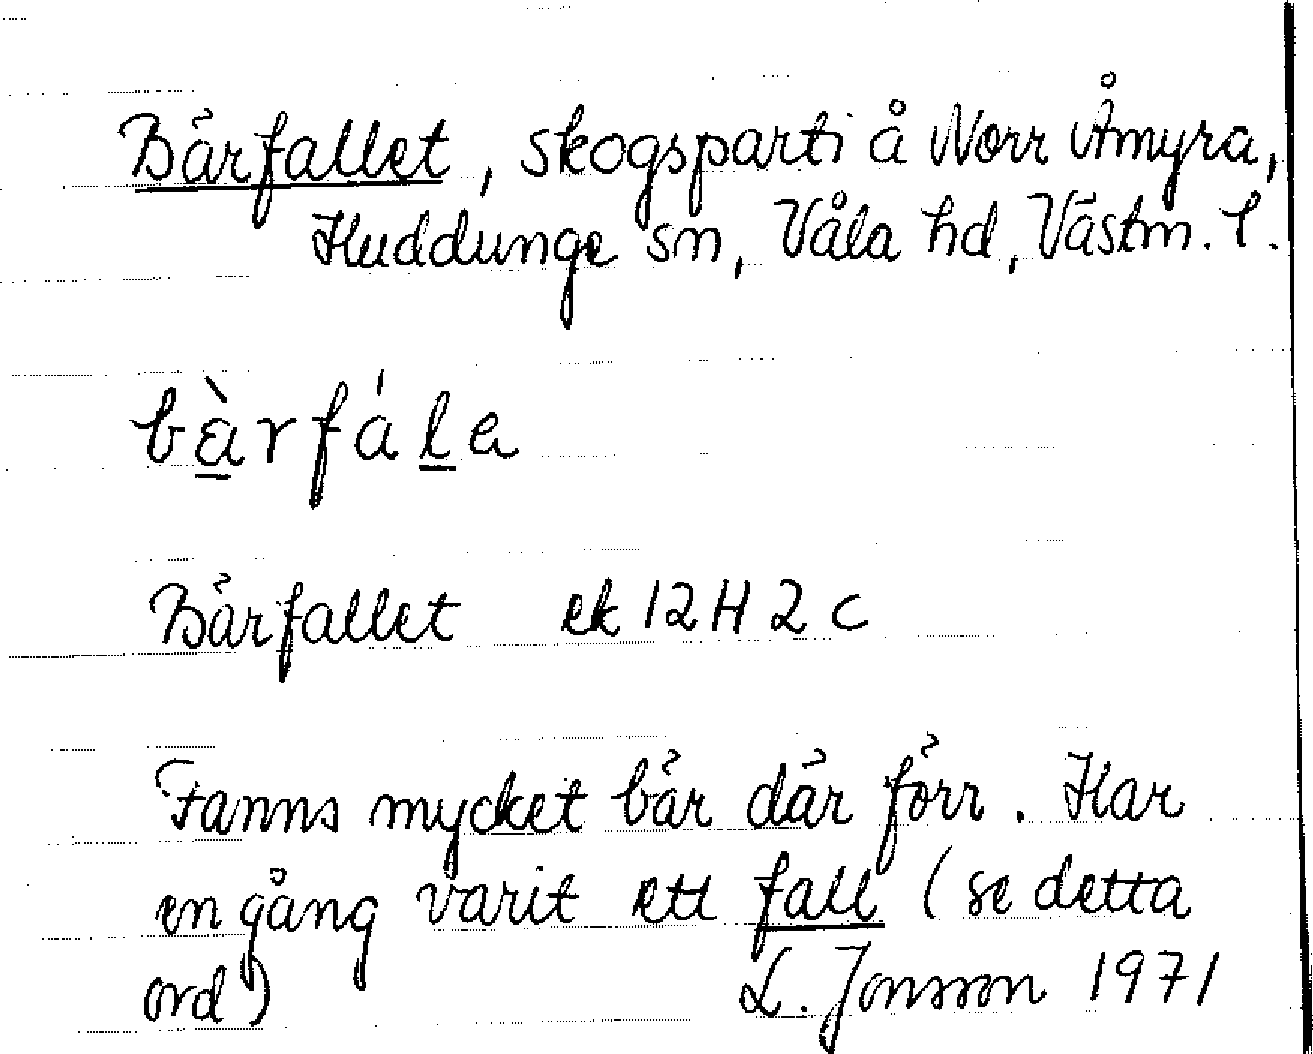 Bärfallet, skogsparti å Norr Åmyra,
Huddunge sn, Våla hd, Västm. l.
bɛ̀rfáḷa
Bärfallet ek 12 H 2 c
Fanns mycket bär där förr. Har
en gång varit ett fall (se detta
ord) L. Jonsson 1971